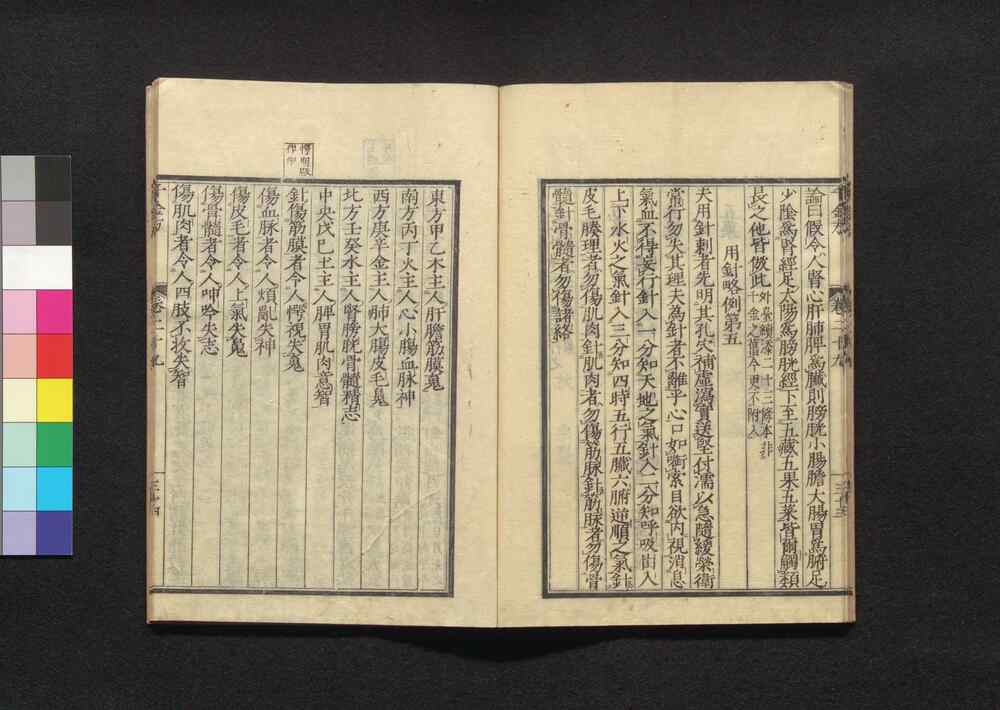 論曰假令人腎心肝肺脾為臟則膀胱小腸膽大腸胃為腑足
少陰為腎經足太陽為膀胱經下至五藏五果五菜皆爾觸類
長之他皆倣此
千金之舊今更不附入
用針略例第五
夫用針刺者先明其孔穴補虛瀉實送堅付濡以急隨緩榮衛
常行勿失其理夫為針者不離乎心口如銜索目欲內視消息
氣血不得妄行針入一分知天地之氣針入二分知呼吸出入
上下水火之氣針入三分知四時五行五臟六腑逆順之氣針
皮毛腠理者勿傷肌肉針肌肉者勿傷筋脉針筋脉者勿傷骨
髓針骨髓者勿傷諸絡
東方甲乙木主人肝膽筋膜䰟
南方丙丁火主人心小腸血脉神
西方庚辛金主人肺大腸皮毛䰟
北方壬癸水主人腎膀胱骨髓精志
中央戊巳土主人脾胃肌肉意智
針傷筋膜者令人愕視失䰟
傷血脉者令人煩亂失神
傷皮毛者令人上氣失䰟
傷骨髓者令人呻吟失志
傷肌肉者令人四肢不收失智
卷二十九
三十四